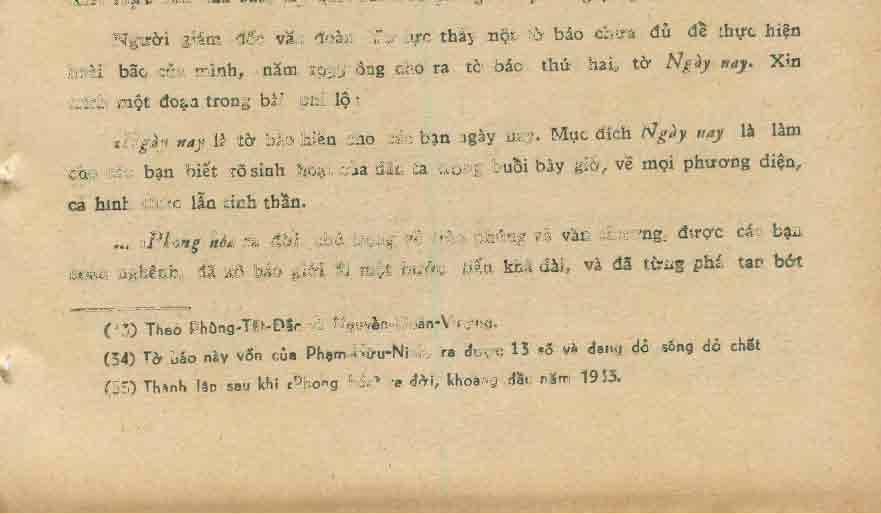 Người giám đốc văn đoàn Tự lực thấy một tờ báo chưa đủ để thực hiện
hoài bão của mình, năm ông cho ra tờ báo thứ hai, tờ Ngày nay. Xin
trích một đoạn trong bài phi lộ :
«Ngày nay là tờ báo hiến cho các bạn ngày nay. Mục đích Ngày nay là làm
cho các bạn biết rõ sinh hoạt của dân ta trong buổi bây giờ, về mọi phương diện,
cả hình thức lẫn tinh thần.
... «Phong hóa ra đời, chú trọng về trào phúng và văn chương, được các bạn
hoan nghênh, đã xô báo giới đi một bước tiến khá dài, và đã từng phá tan bớt
Theo Phùng-Tất-Đắc và
(34) Tờ báo này vốn của Phạm-Hữu-Ninh, ra được 13 số và đang dở sống dở chết
(35) Thành lập sau khi «Phong hóa» ra đời, khoảng đầu năm 1933.